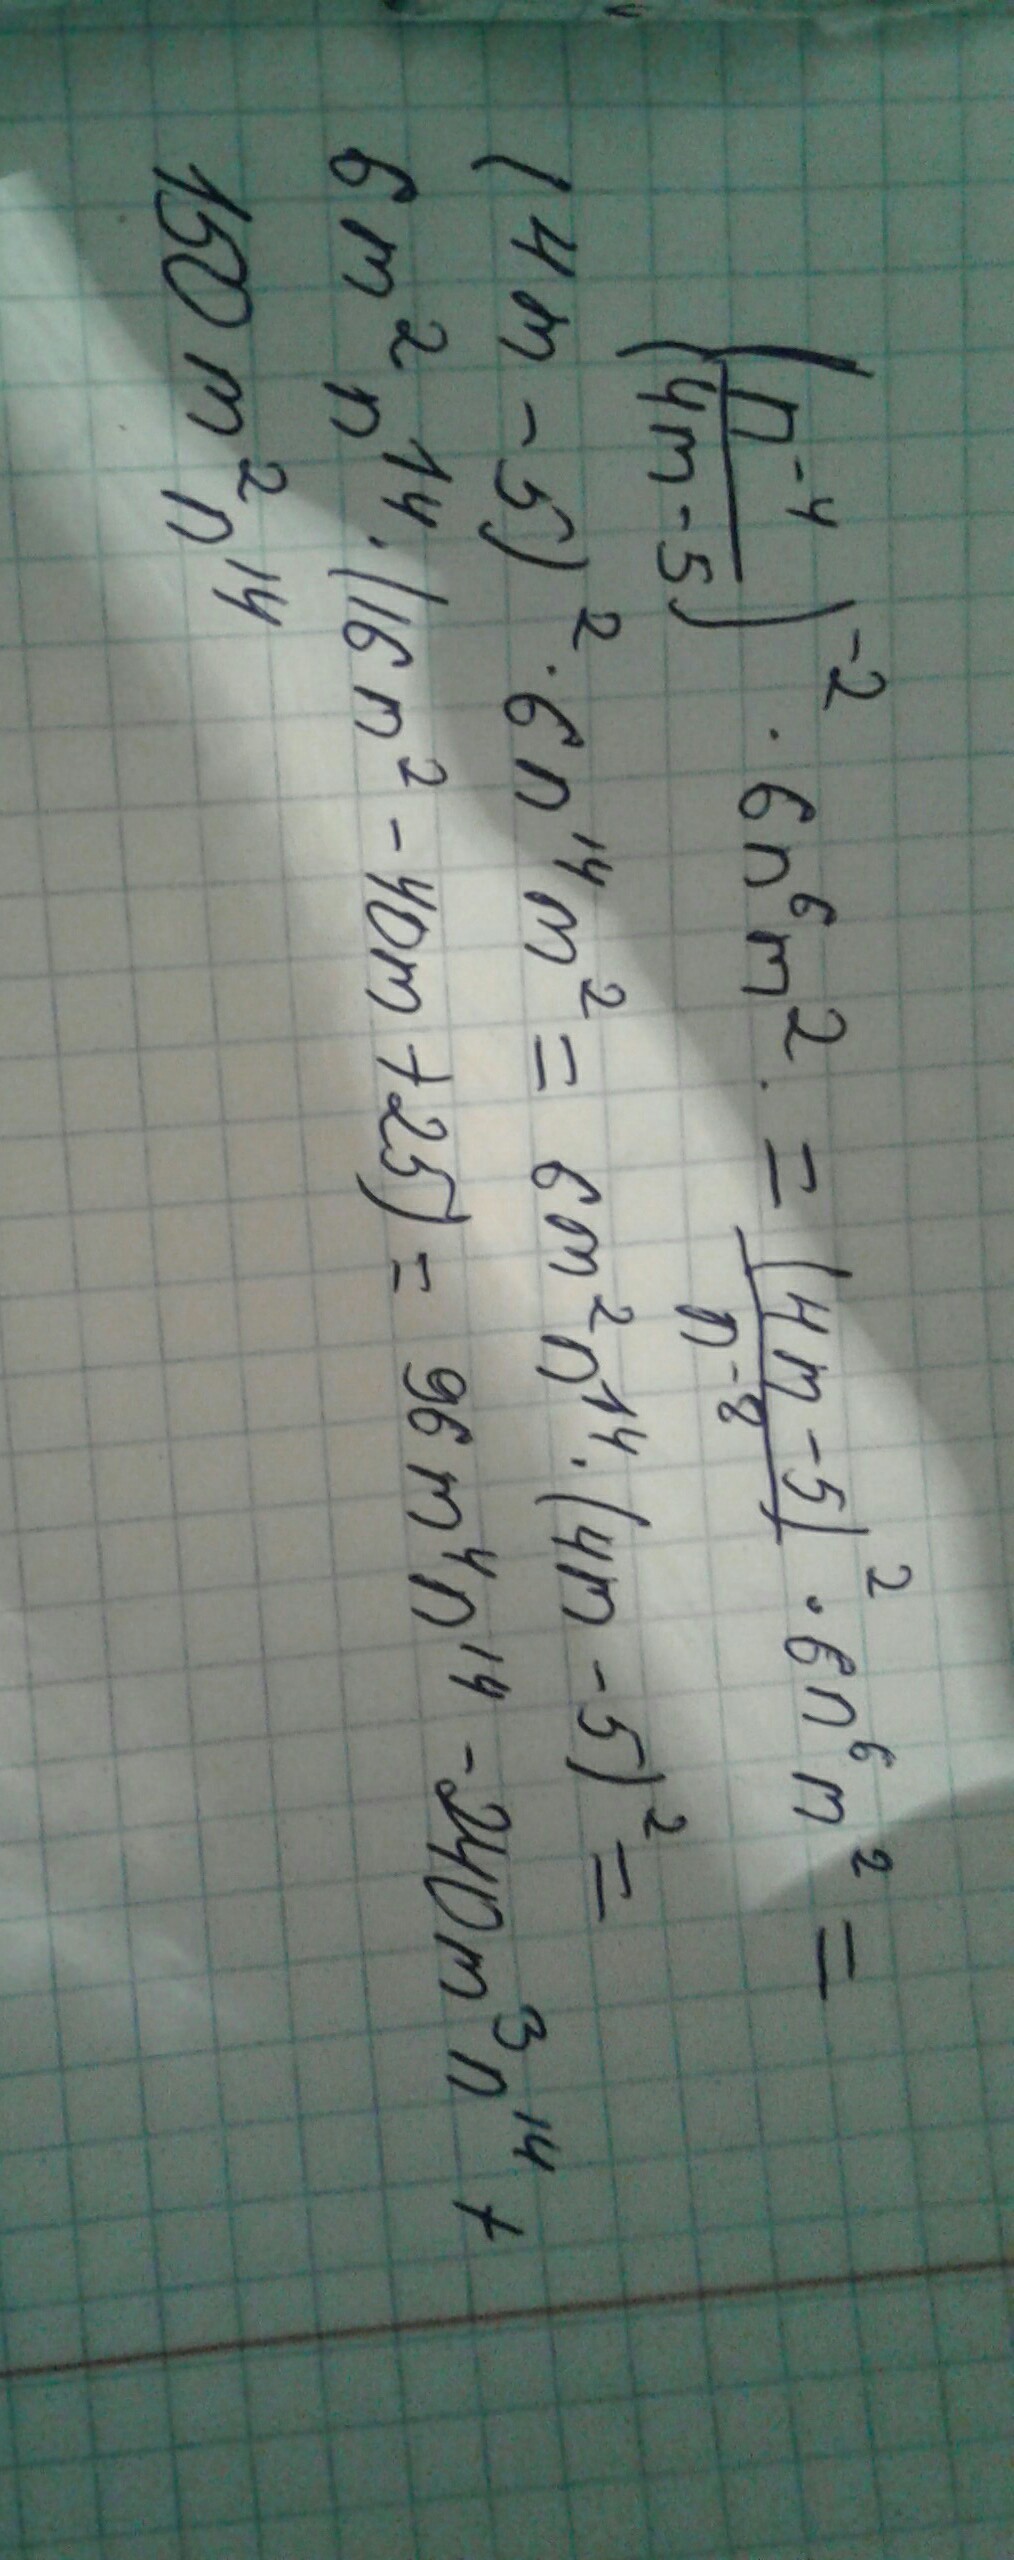 (n⁻⁴/(4m-5))⁻² · 6n⁶m² · = (4m-5)²/n⁻⁸ · 6n⁶m² =
(4m-5)² · 6n¹⁴m² = 6m²n¹⁴ · (4m-5)² =
6m²n¹⁴ · (16m²-40m+25) = 96m⁴n¹⁴ - 240m³n¹⁴ +
150m²n¹⁴